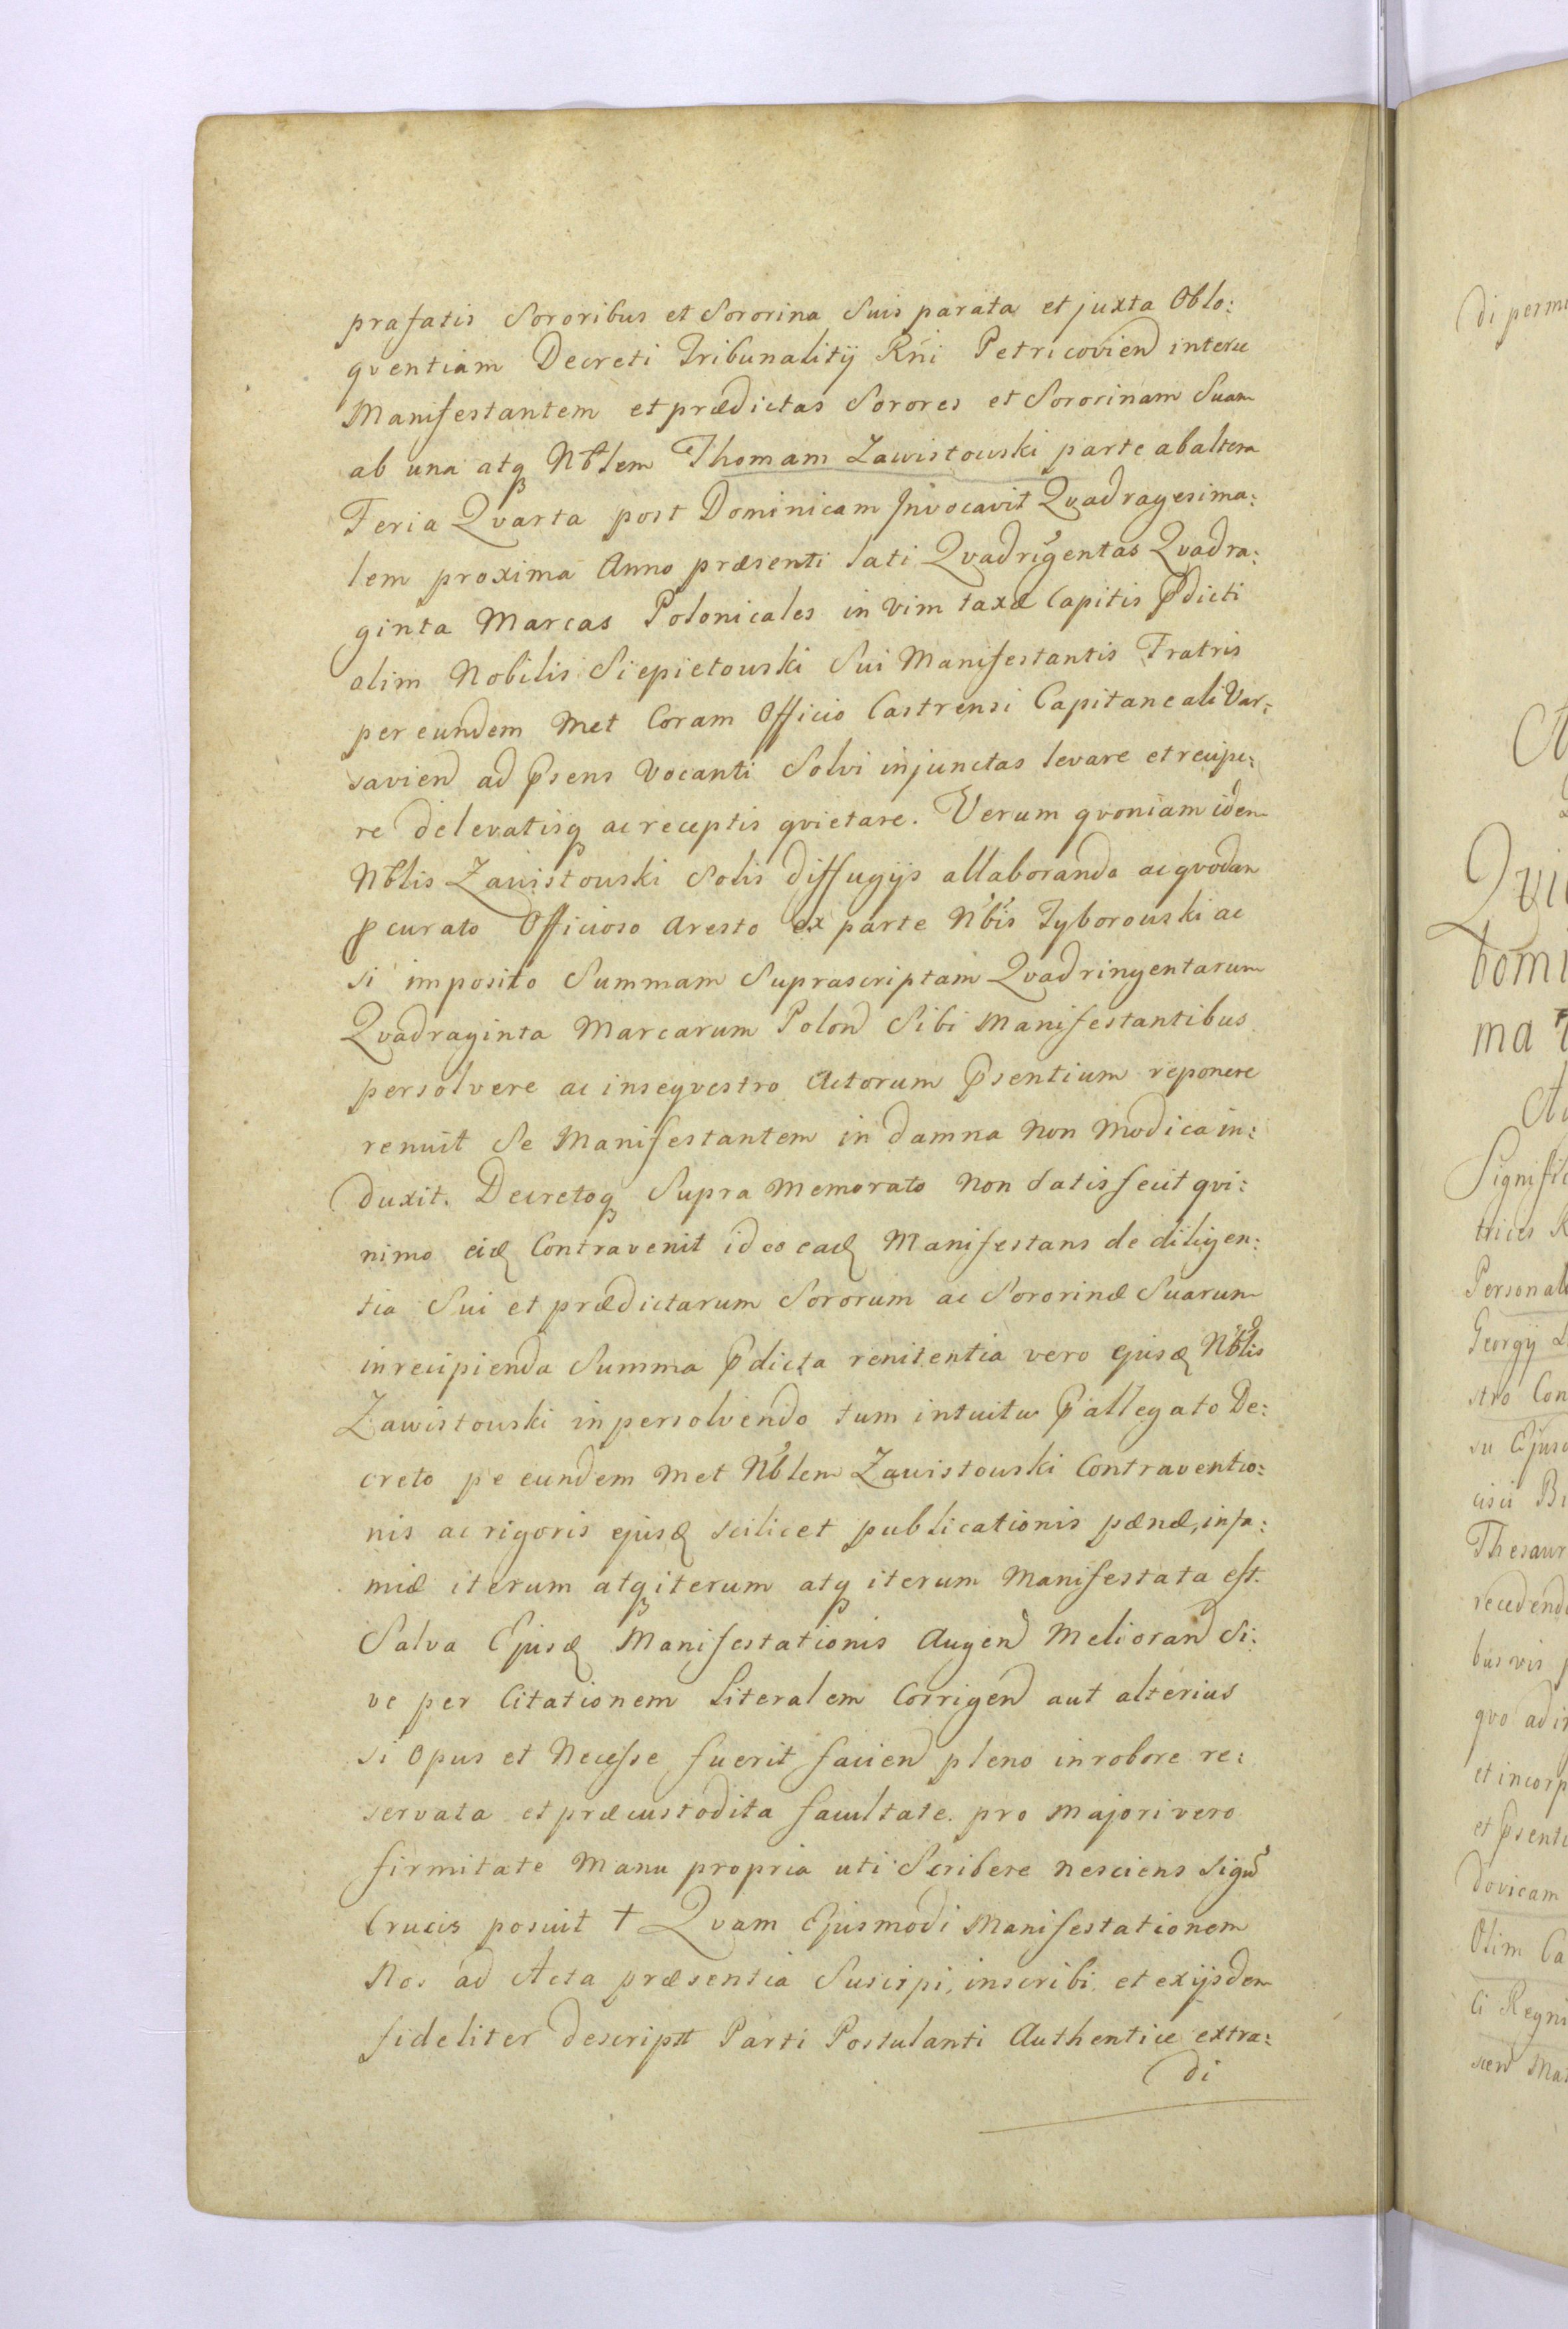 prafatis Sororibus et Sororina Suis parata et juxta Oblo:
qventiam Decreti Tribunalitij Rńi Petricoviend interse
Manifestantem et prædictas Sorores et Sororinam Suam
ab una atq Nblem Thomam Zawistowski parte ab altera
Feria Qvarta post Dominicam Invocavit Qvadragesima:
lem proxima Anno præsenti lati Qvadrigentas Qvadra:
ginta Marcas Polonicales in vim taxæ Capitis pdicti
olim Nobilis Siepietowski Sui Manifestantis Fratris
per eundem Met Coram Officio Castrensi Capitaneali Var:
saviend ad psens Vocanti Solvi injunctas levare et recipe:
re delevatisq ac receptis qvietare. Verum qvoniam idem
Nblis Zawistowski Solis diffugijs allaborando ac qvodam
pcurato Officioso Aresto ex parte Nbis Tyborowski ac
si imposito Summam Suprascriptam Qvadringentarum
Qvadraginta Marcarum Polond Sibi Manifestantibus
persolvere ac inseqvestro Actorum Psentium reponere
renuit Se Manifestantem in damna non Modica in:
duxit. Decretoq Supra Memorato non Satisfecit qvi:
nimo eid Contravenit ideo ead Manifestans de diligen:
tia Sui et prædictarum Sororum ac Sororinæ Suarum
in recipienda Summa pdicta renitentia vero ejusd Nblis
Zawistowski in persolvendo tum intuitu Pallegato De:
creto pe eundem Met Nblem Zawistowski Contraventio:
nis ac rigoris ejusd scilicet publicationis pænæ, infa:
miæ iterum atq iterum atq iterum Manifestata est.
Salva Ejusd Manifestationis Augend Meliorand Si:
ve per Citationem Literalem Corrigend aut alterius
si Opus et Necesse fuerit faciend pleno in robore re:
servata et præcustodita facultate. pro Majori vero
firmitate Manu propria uti Scribere nesciens Signũ
Crucis posuit † Qvam Ejusmodi Manifestationem
Nos ad Acta præsentia Suscipi, inscribi, et ex ijsdem
fideliter descript Parti Postulanti Authentice extra:
di
di
Qvi
bomi
ma
Signifi
trices
Personal
Georgij
stro Con
su Ejus
Thesaur
recedend
bus vis
qvo ad i
et incorp
et psent
dovicam
Olim Ca
li Regni